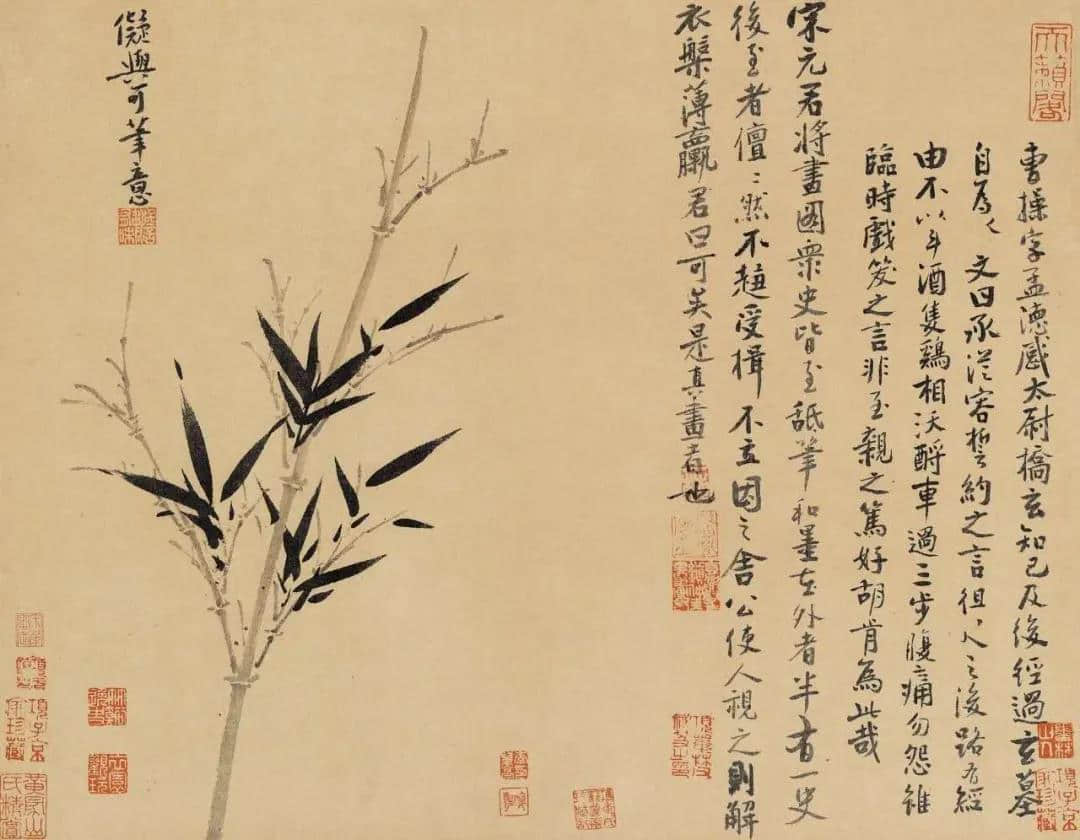 天籟閣
曹操字孟德感太尉橋玄知己及後經過玄墓
自為文曰承從容誓約之言徂之後路有經
由不以斗酒隻鷄相沃酹車過三步腹痛勿怨雖
臨時戲笑之言非至親之篤好胡肯為此哉
宋元君將畫圖眾史皆至舐筆和墨在外者半有一史
後至者儃〻然不趨受揖不立因之舍公使人視之則解
衣槃薄臝君曰可矣是真畫者也
儗與可筆意
墨林山人
項子京家珍藏
項子京家珍藏